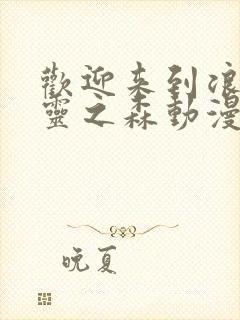 歡迎来到浪
靈之森動漫
晚夏